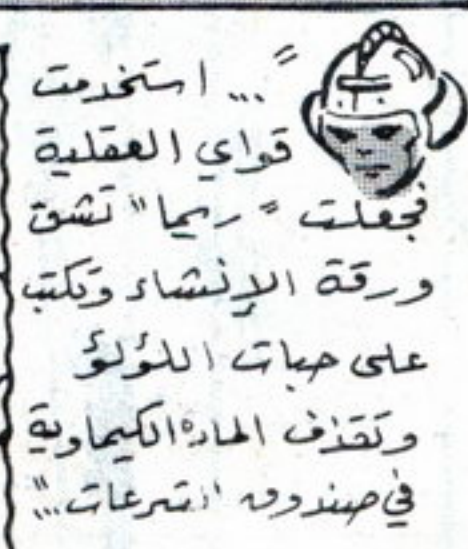 "... استخدمت
قواي العقلية
فجعلت "ريما" تشق
ورقة الإنشاء وتكتب
على حبات اللؤلؤ
وتقذف المادة الكيماوية
في صندوق التبرعات..."